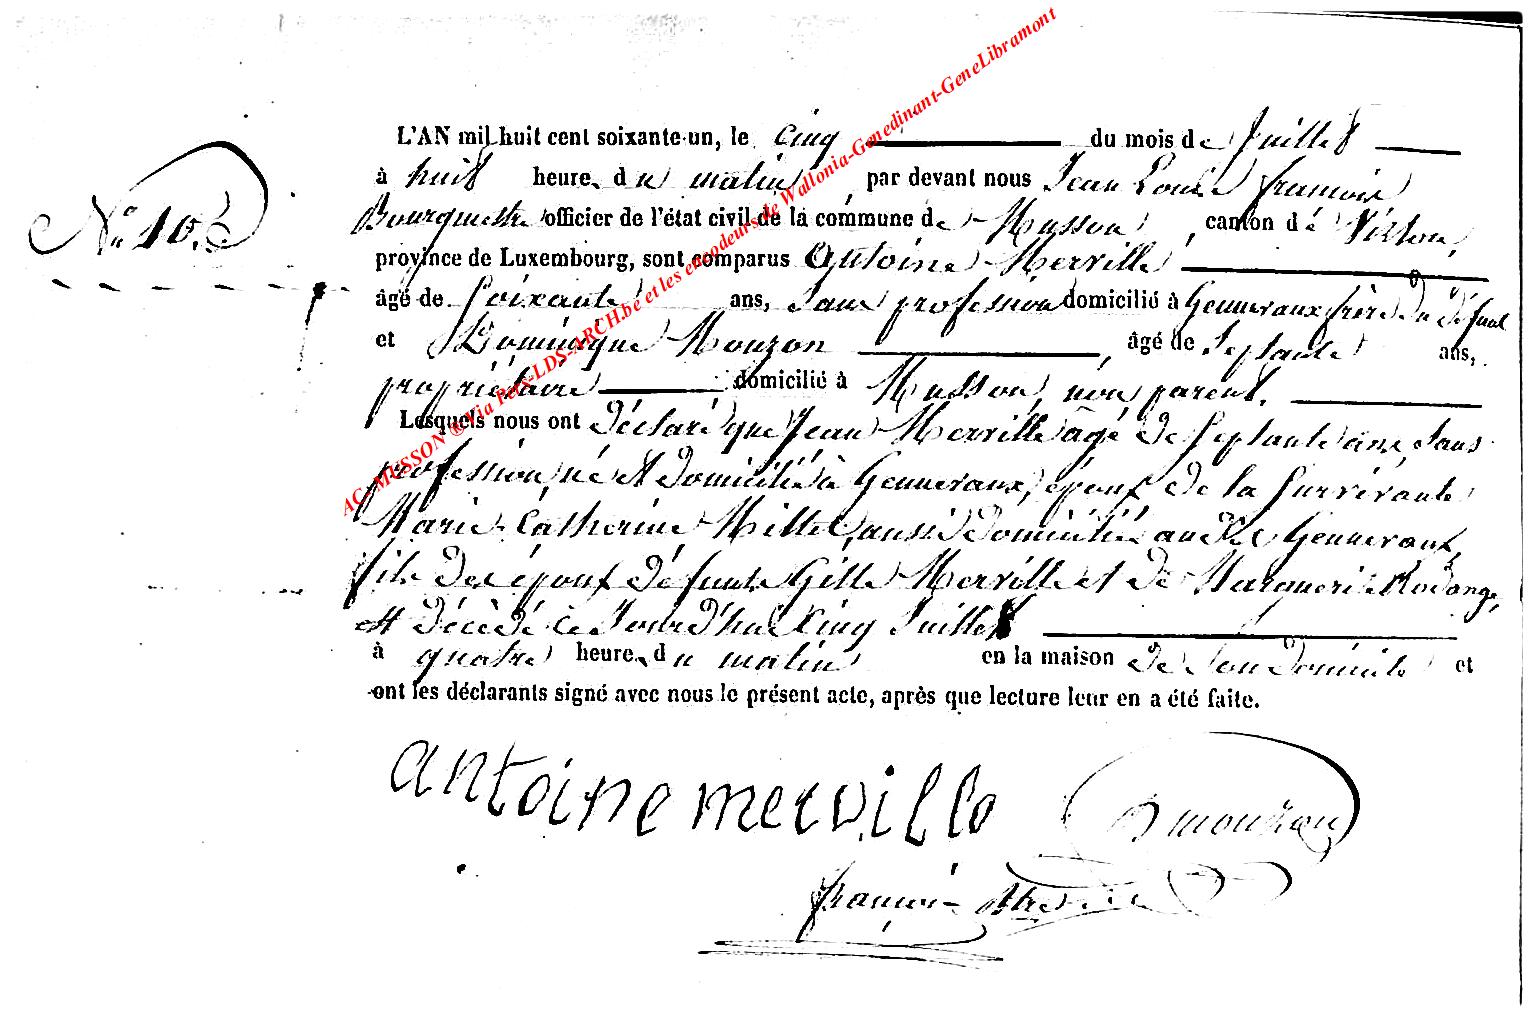 AC-MUSSON ® Via Pers-LDS-ARCH.be et les encodeurs de Wallonia-Genedinant-GeneLibramont
N° 10.
L'AN mil huit cent soixante-un, le cinq du mois de Juillet
à huit heures du matin par devant nous Jean Louis françois
Bourguestre officier de l'état civil de la commune de Musson, canton de Virton,
province de Luxembourg, sont comparus Antoine Merville
âgé de soixante ans, sans profession domicilié à Genneraux frère du défunt
et Dominique Mouzon, âgé de septante ans,
propriétaire domicilié à Musson, non parent.
Lesquels nous ont déclaré que Jean Merville âgé de septante ans, sans
profession, né et domicilié à Genneraux, époux de la survivante
Marie-Catherine Millet, aussi domiciliée au dit Genneraux,
fils des époux défunts Gille Merville et de Marguerite Rodange,
est décédé ce jourd'hui cinq Juillet
à quatre heures du matin en la maison de son domicile et
ont les déclarants signé avec nous le présent acte, après que lecture leur en a été faite.
antoine merville D mouzon
françois